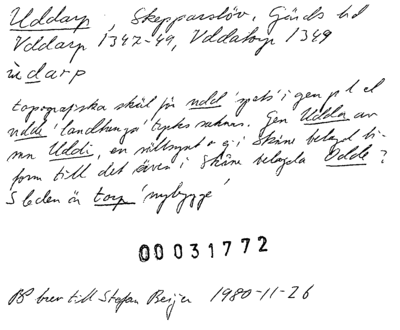 Uddarp, Skepparslöv, Gärds hd
Vddarp 1347-49, Vddatorp 1349
ùdarp
topografiska skäl för udd 'spets' i gen pl el
udde 'landtunga' tycks saknas. Gen Udda av
mn Uddi, en i Skåne belagd
form till det även i Skåne belagda Odde?
Sleden är torp 'nybygge'
00031772
BP brev till Stefan Beijer 1980-11-26